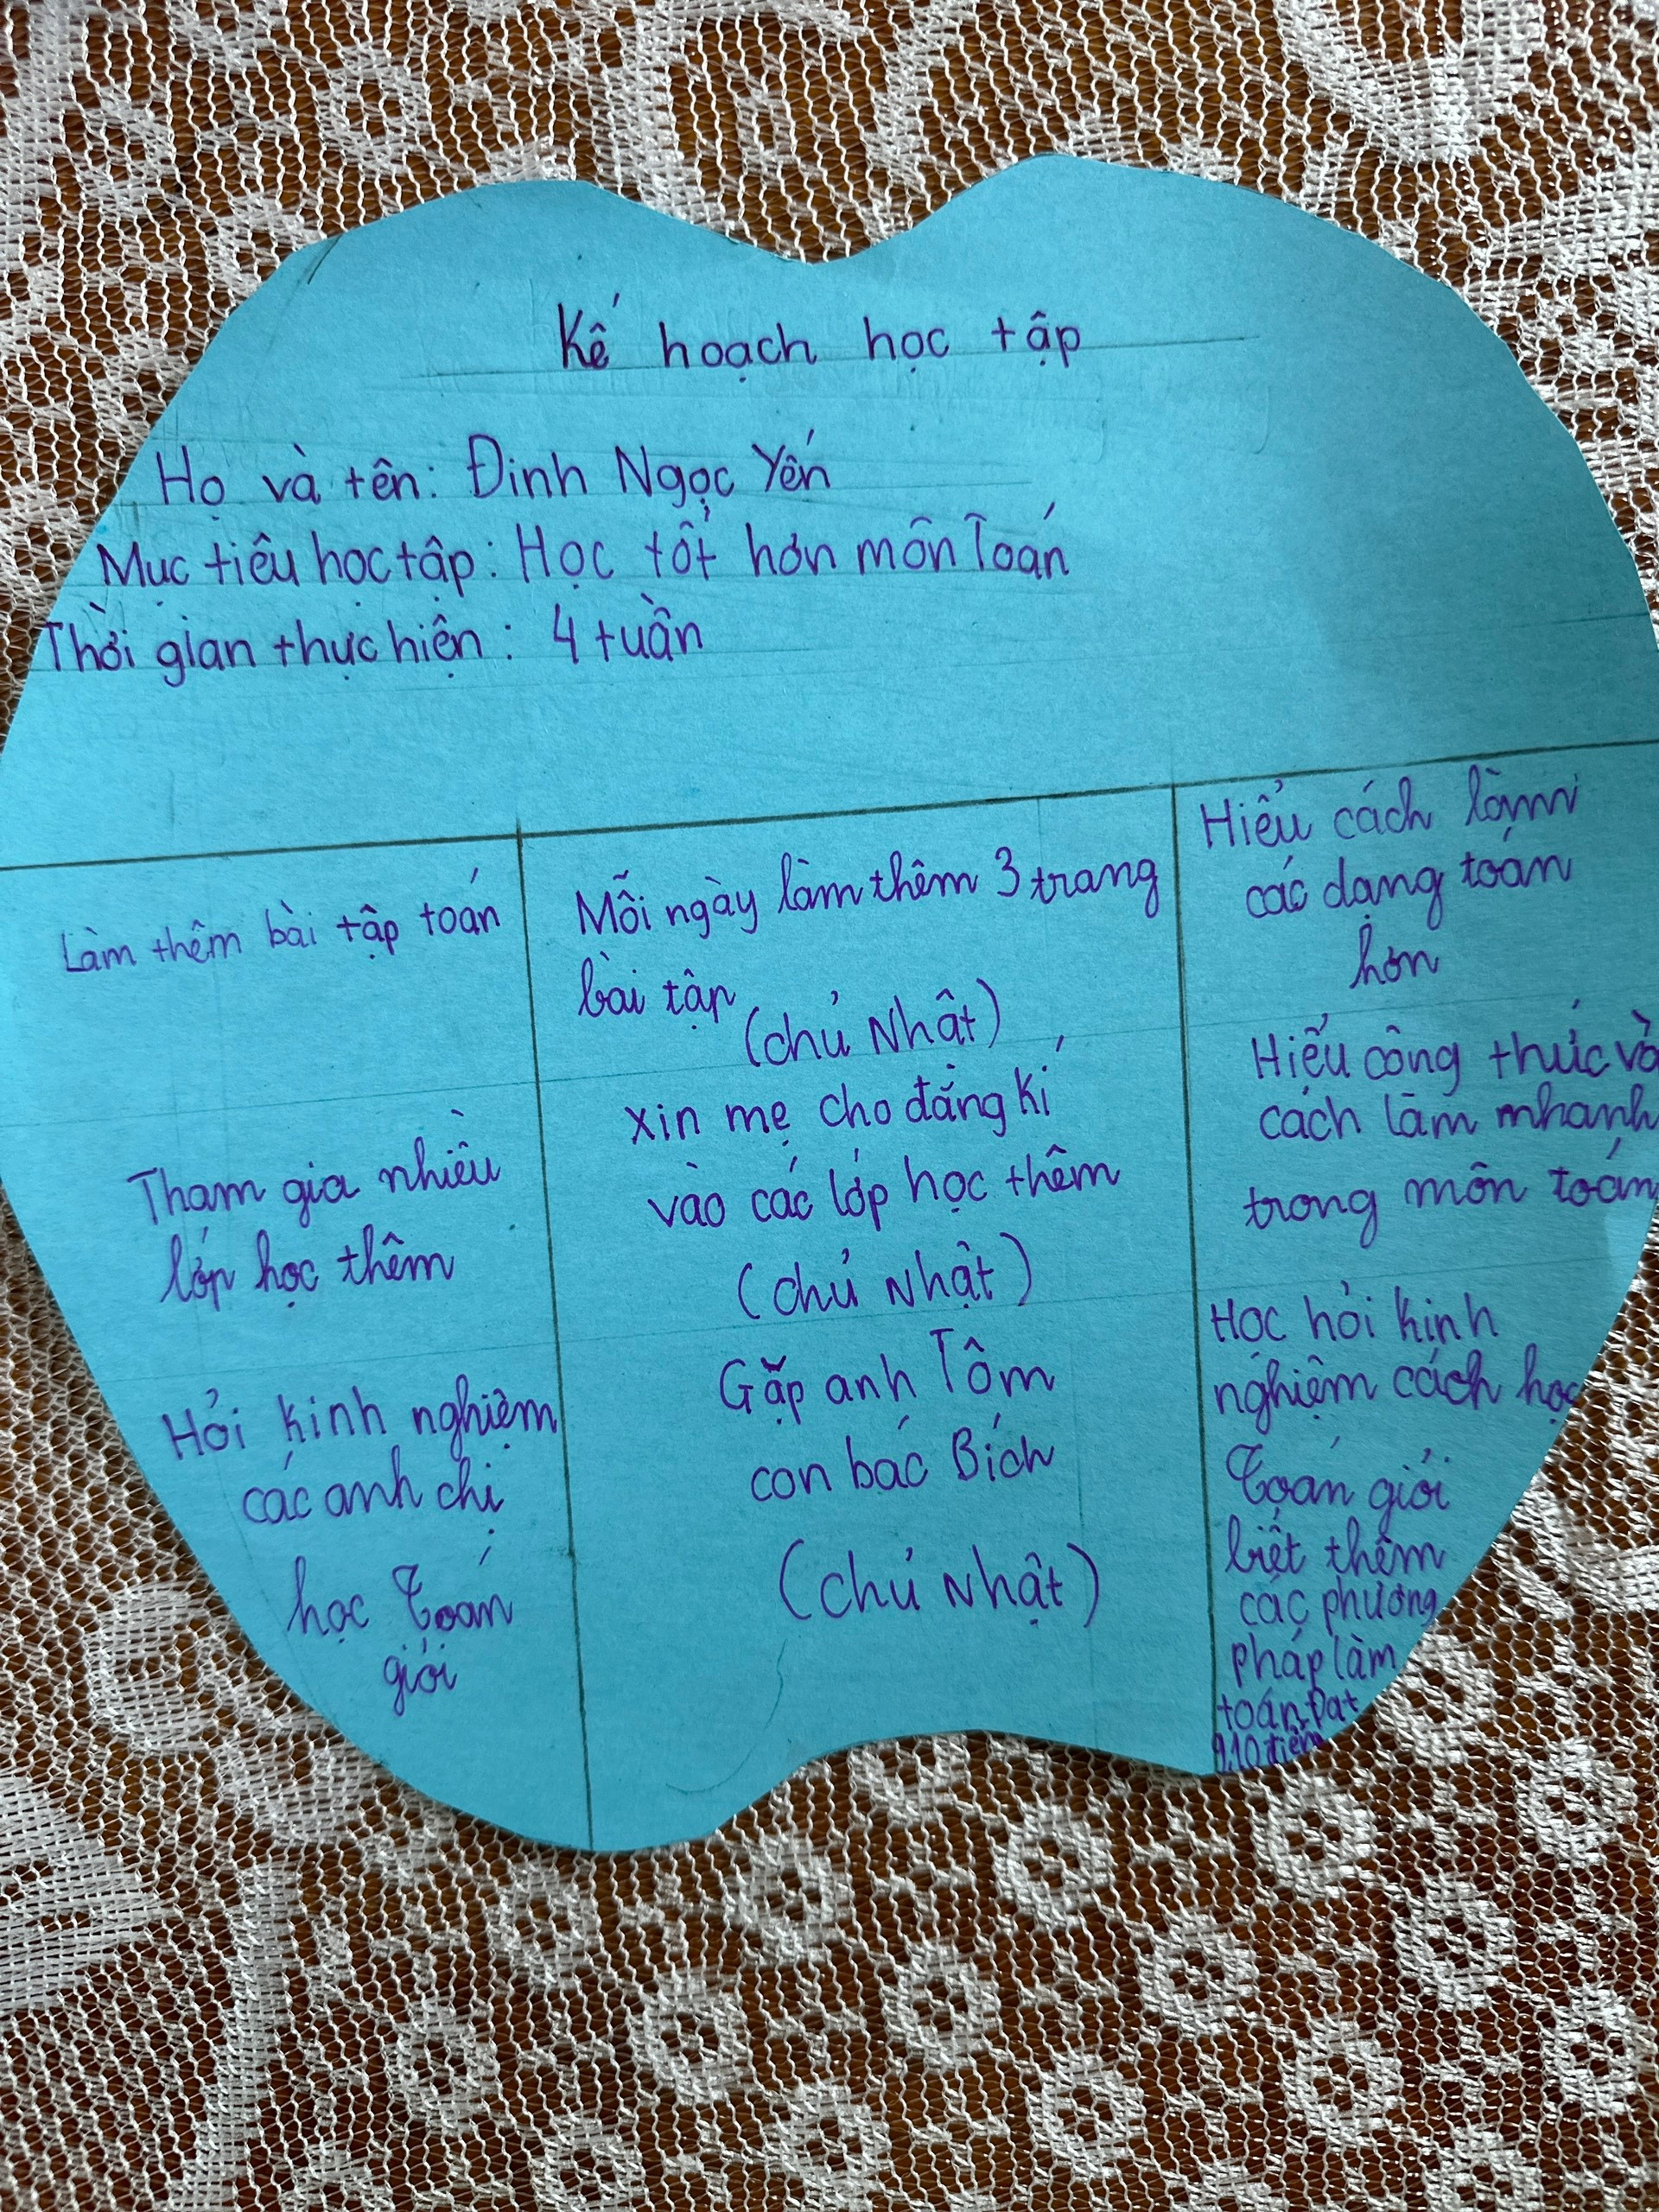 Kế hoạch học tập
Họ và tên: Đinh Ngọc Yến
Mục tiêu học tập: Học tốt hơn môn Toán
Thời gian thực hiện: 4 tuần
Làm thêm bài tập toán
Mỗi ngày làm thêm 3 trang
bài tập
(chủ Nhật)
Hiểu cách làm
các dạng toán
hơn
Tham gia nhiều
lớp học thêm
xin mẹ cho đăng kí
vào các lớp học thêm
(chủ Nhật)
Hiểu công thức và
cách làm nhanh
trong môn toán
Hỏi kinh nghiệm
các anh chị
học Toán
giỏi
Gặp anh Tôm
con bác Bích
(chủ Nhật)
Học hỏi kinh
nghiệm cách học
Toán giỏi
biết thêm
các phương
pháp làm
toán. Đạt
9,10 điểm